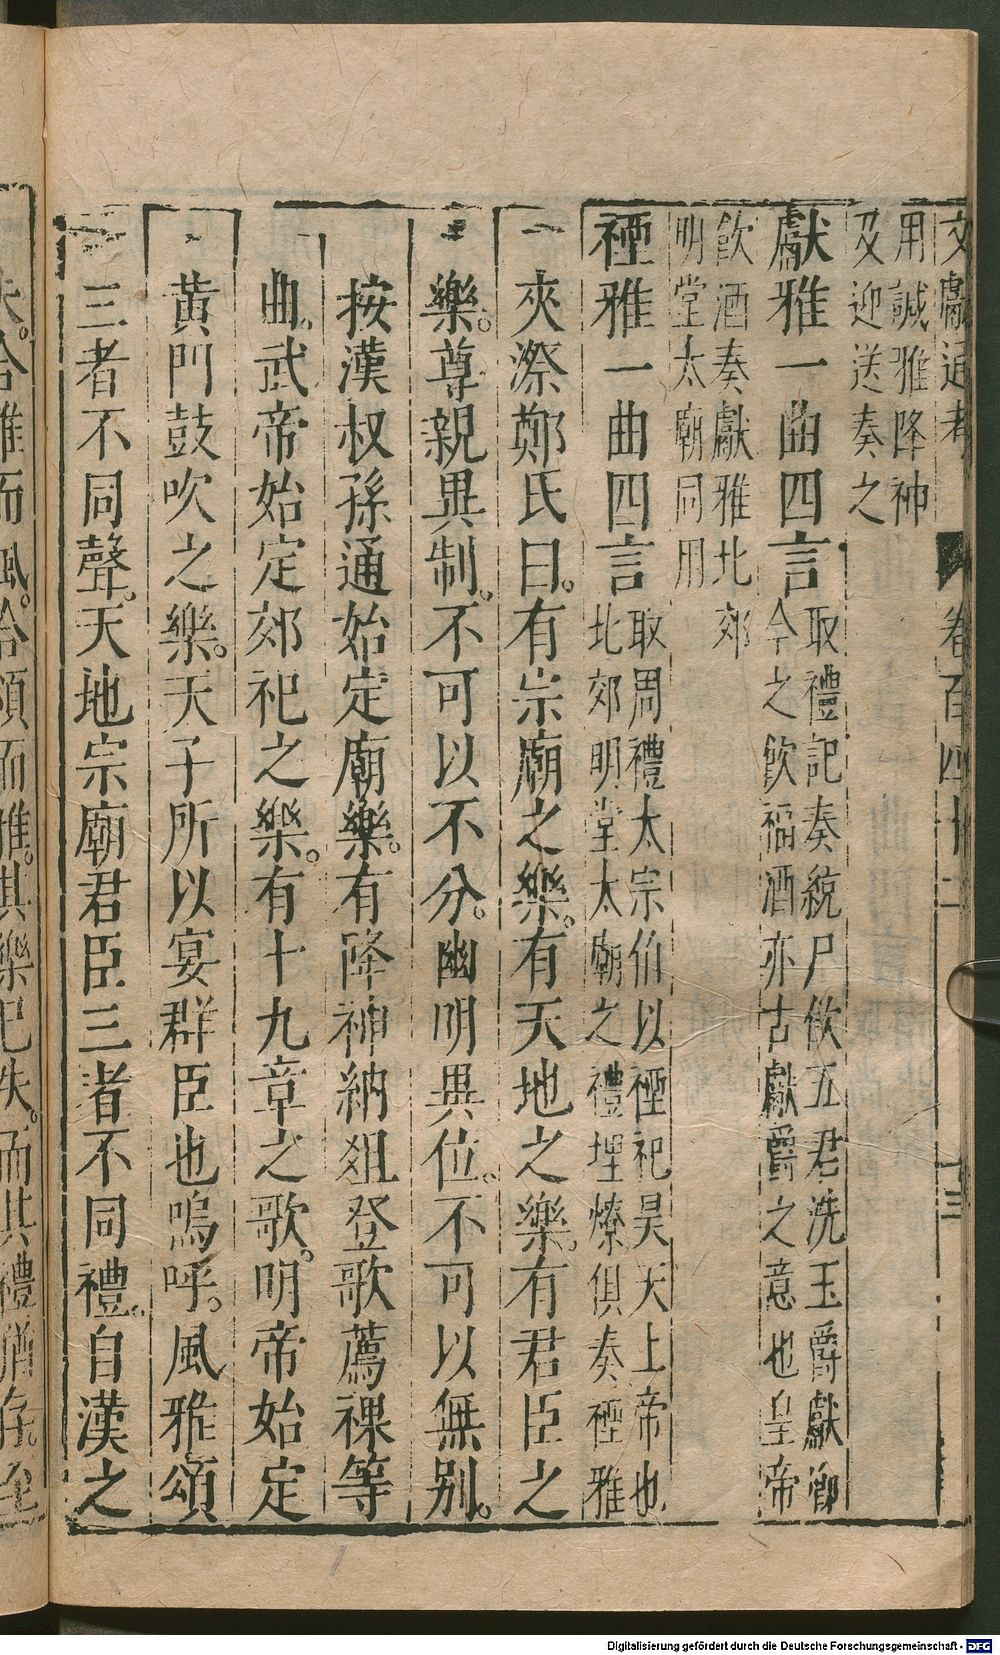 文獻通考 卷百四十二 十三
用誠雅降神
及迎送奏之
獻雅一曲四言
取禮記奏統尸飮五君洗玉爵獻卿
今之飮福酒亦古獻爵之意也皇帝
飮酒奏獻雅北郊
明堂太廟同用
禋雅一曲四言
取周禮太宗伯以禋祀昊天上帝也
北郊明堂太廟之禮埋燎俱奏禋雅
夾漈鄭氏曰。有宗廟之樂。有天地之樂。有君臣之
樂。尊親異制。不可以不分。幽明異位。不可以無别。
按漢叔孫通始定廟樂。有降神納俎登歌薦祼等
曲。武帝始定郊祀之樂。有十九章之歌。明帝始定
黃門鼓吹之樂。天子所以宴群臣也嗚呼。風雅頌
三者不同聲。天地宗廟君臣三者不同禮。自漢之
失。合雅而風。合頌而雅。其樂已失。而其禮猶存。至
Digitalisierung gefördert durch die Deutsche Forschungsgemeinschaft - DFG